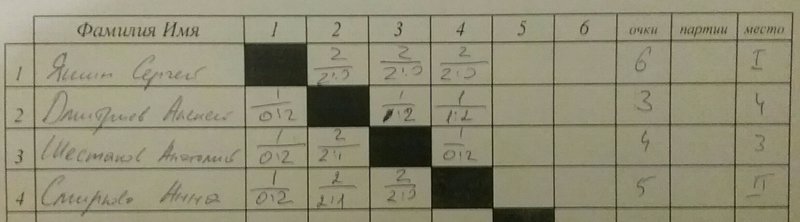 Фамилия Имя 1 2 3 4 5 6 очки партии место
1 Яшин Сергей 2 2:0 2 2:0 2 2:0 6 I
2 Дмитриев Алексей 1 0:2 1 1:2 1 1:2 3 4
3 Шестаков Анатолий 1 0:2 2 2:1 1 0:2 4 3
4 Смирнова Анна 1 0:2 2 2:1 2 2:0 5 II